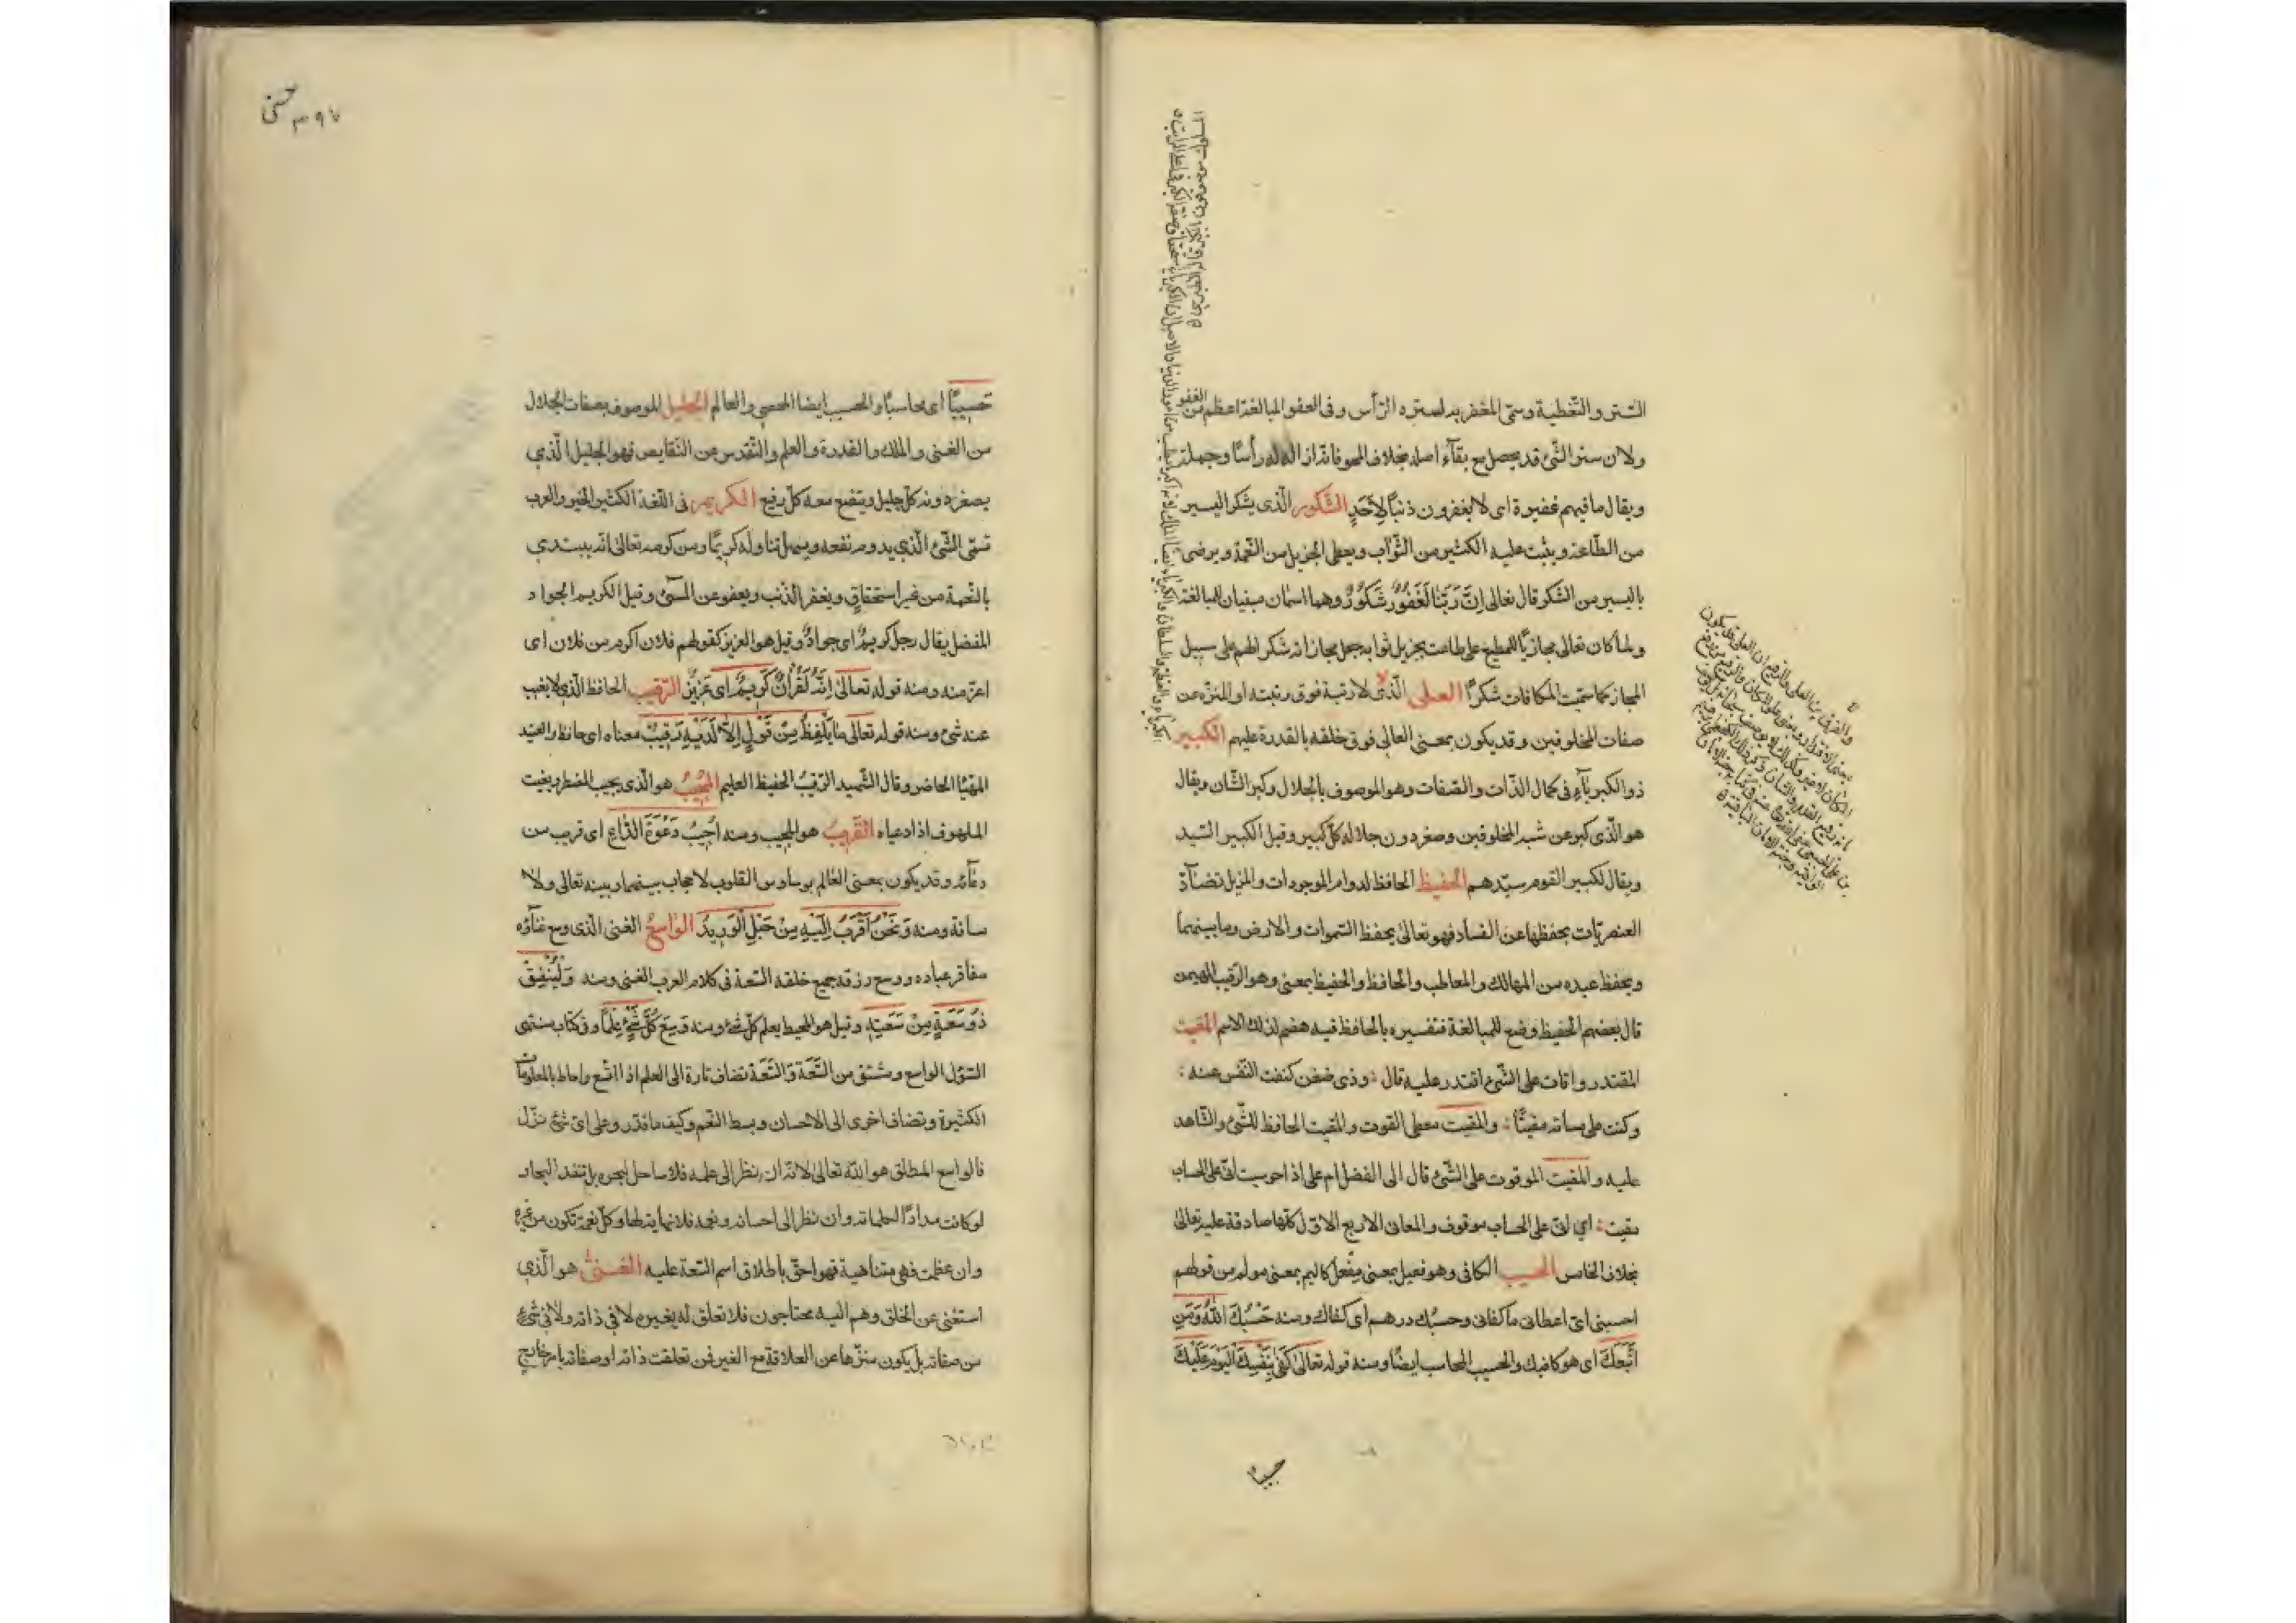 الستر والتغطية وسمّى المغفر به لستره الرّأس وفى العفو المبالغة اعظم من الغفو
ولان ستر الشّئ قد يحصل مع بقآء اصله بخلاف المحو فانّه ازاله رأسًا وجملة
ويقال ما فيهم غفيرة اى لا يغفرون ذنبًا لِاَحَدٍ الشّكور الّذى يشكر اليسير
من الطّاعة ويثبت عليه الكثير من الثّواب ويعطى الجزيل من النّعمة ويرضى
باليسير من الشّكر قال تعالى اِنَّ رَبَّنَا لَغَفُورٌ شَكُورٌ وهما اسمان مبنيان للمبالغة
ولما كان تعالى مجازيًا للمطيع على طاعته بجزيل ثوابه جعل مجازاته شكرا لهم على سبيل
المجاز كما سمّيت المكافات شكرًا العلى الّذى لا رتبة فوق رتبته او المنزّه عن
صفات المخلوقين وقد يكون بمعنى العالى فوق خلقه بالقدرة عليهم الكبير
ذو الكبريآء فى كمال الذّات والصّفات وهو الموصوف بالجلال وكبر الشّان ويقال
هو الّذى كبر عن شبه المخلوقين وصغر دون جلاله كلّ كبير وقيل الكبير السّيد
ويقال لكبير القوم سيّدهم الحفيظ الحافظ لدوام الموجودات والمزيل تضآدّ
العنصريّات بحفظها عن الفساد فهو تعالى يحفظ السّموات والارض وما بينهما
ويحفظ عبده من المهالك والمعاطب والحافظ والحفيظ بمعنى وهو الرّقيب المهيمن
قال بعضهم الحفيظ وضع للمبالغة فتفسيره بالحافظ فيه هضم لذلك الاسم المقيت
المقتدر واقات على الشّئ اقتدر عليه قال : وذى ضغن كففت النّفس عنه :
وكنت على مسائته مقيتًا : والمقيت معطى القوت والمقيت الحافظ للشّئ والشّاهد
عليه والمقيت الموقوت على الشّئ قال الى الفضل ام على اذا حوسبت انّى على الحساب
مقيت : اى انّى على الحساب موقوف والمعانى الاربع الاوّل كلّها صادقة عليه تعالى
بخلاف الخامس الحسيب الكافى وهو فعيل بمعنى مفعل كاليم بمعنى مولم من قولهم
احسبنى اى اعطانى ما كفانى وحسبُك درهم اى كفاك ومنه حَسْبُكَ اللّهُ وَمَنِ
اتَّبَعَكَ اى هو كافيك والحسيب المحاسب ايضًا ومنه قوله تعالى كَفىٰ بِنَفْسِكَ الْيَوْمَ عَلَيْكَ
حسيبًا
٣٩٧ حسنى
حَسِيبًا اى محاسبًا والحسيب ايضا المحصى والعالم الجليل الموصوف بصفات الجلال
من الغنى والملك والقدرة والعلم والتّقدس عن النّقايص فهو الجليل الّذى
يصغر دونه كلّ جليل ويتضع معه كلّ رفيع الكريم فى اللّغة الكثير الخير والعرب
تسمّى الشّئ الّذى يدوم نفعه ويسهل تناوله كريمًا ومن كرمه تعالى انّه يبتدى
بالنّعمة من غير استحقاق ويغفر الذّنب ويعفو عن المسئ وقيل الكريم الجواد
المفضل يقال رجل كريمٌ اى جوادٌ وقيل هو العزيز كقولهم فلان اكرم من فلان اى
اعزّ منه ومنه قوله تعالىٰ اِنَّهُ لَقُرْاٰنٌ كَرِيمٌ اى عَزِيزٌ الرّقيب الحافظ الّذى لا يغيب
عنه شئ ومنه قوله تعالى مَا يَلْفِظُ مِنْ قَوْلٍ اِلاّ لَدَيْهِ رَقِيبٌ معناه اى حافظ والعتيد
المهيّا الحاضر وقال الشّهيد الرّقيبُ الحفيظ العليم المجيب هو الّذى يجيب المضطر ويغيث
الملهوف اذا دعياه القريب هو المجيب ومنه اُجِيبُ دَعْوَةَ الدّاعِ اى قريب من
دعآئه وقد يكون بمعنى العالم بوساوس القلوب لا حجاب بينهما وبينه تعالى ولا
مسافة ومنه وَنَحْنُ اَقْرَبُ اِلَيْهِ مِنْ حَبْلِ الْوَرِيدِ الواسع الغنى الّذى وسع غناؤه
مفاقر عباده ووسع رزقه جميع خلقه السّعة فى كلام العرب الغنى ومنه وَلْيُنْفِقْ
ذُو سَعَةٍ مِنْ سَعَتِهِ وقيل هو المحيط بعلم كلّ شئ ومنه وَسِعَ كُلَّ شَىْءٍ عِلْمًا وفى كتاب منتهى
السّؤل الواسع مشتق من السّعة والسّعة تضاف تارة الى العلم اذا اتّسع واحاط بالمعلومات
الكثيرة وتضاف اخرى الى الاحسان وبسط النّعم وكيف ما قدّر وعلى اىّ شئ نزّل
فالواسع المطلق هو اللّه تعالى لانّه ان نظر الى علمه فلا ساحل لبحره بل تنفد البحار
لو كانت مدادًا لكلماته وان نظر الى احسانه ونعمه فلا نهاية لها وكلّ نعمة تكون من غيره
وان عظمت فهى متناهية فهو احقّ باطلاق اسم السّعة عليه الغنىّ هو الّذى
استغنى عن الخلق وهم اليه محتاجون فلا تعلق له بغيره لا فى ذاته ولا فى شئ
من صفاته بل يكون منزّها عن العلاقة مع الغير فمن تعلقت ذاته او صفاته بامر خارج